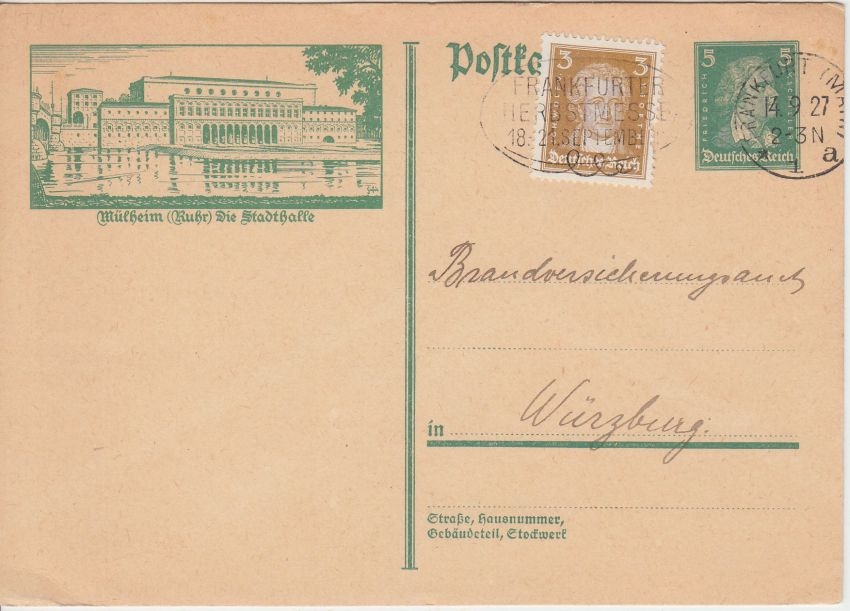 Mülheim (Ruhr) Die Stadthalle
Postka
3
3
Deutsches Reich
FRANKFURTER
HERBSTMESSE
18.-21.SEPTEMBER
5
5
FRIEDRICH
Deutsches Reich
FRANKFURT (MAIN)
14.9.27
2-3N
1 a
Brandversicherungsamt
in Würzburg.
Straße, Hausnummer,
Gebäudeteil, Stockwerk